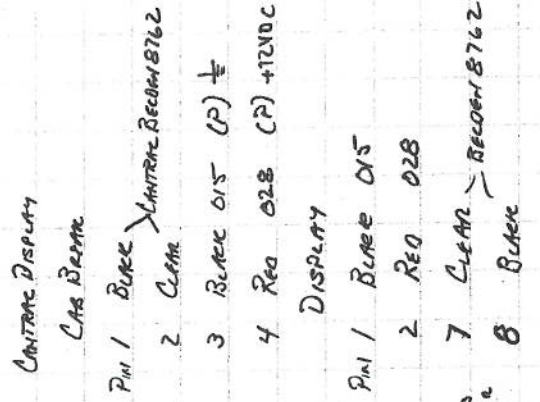 CANTRAC DISPLAY
CAB BREAK
PIN 1 BLACK > CANTRAC BELDEN 8762
2 CLEAR
3 BLACK 015 (P) ⏚
4 RED 028 (P) +12VDC
DISPLAY
PIN 1 BLACK 015
2 RED 028
7 CLEAR > BELDEN 8762
8 BLACK